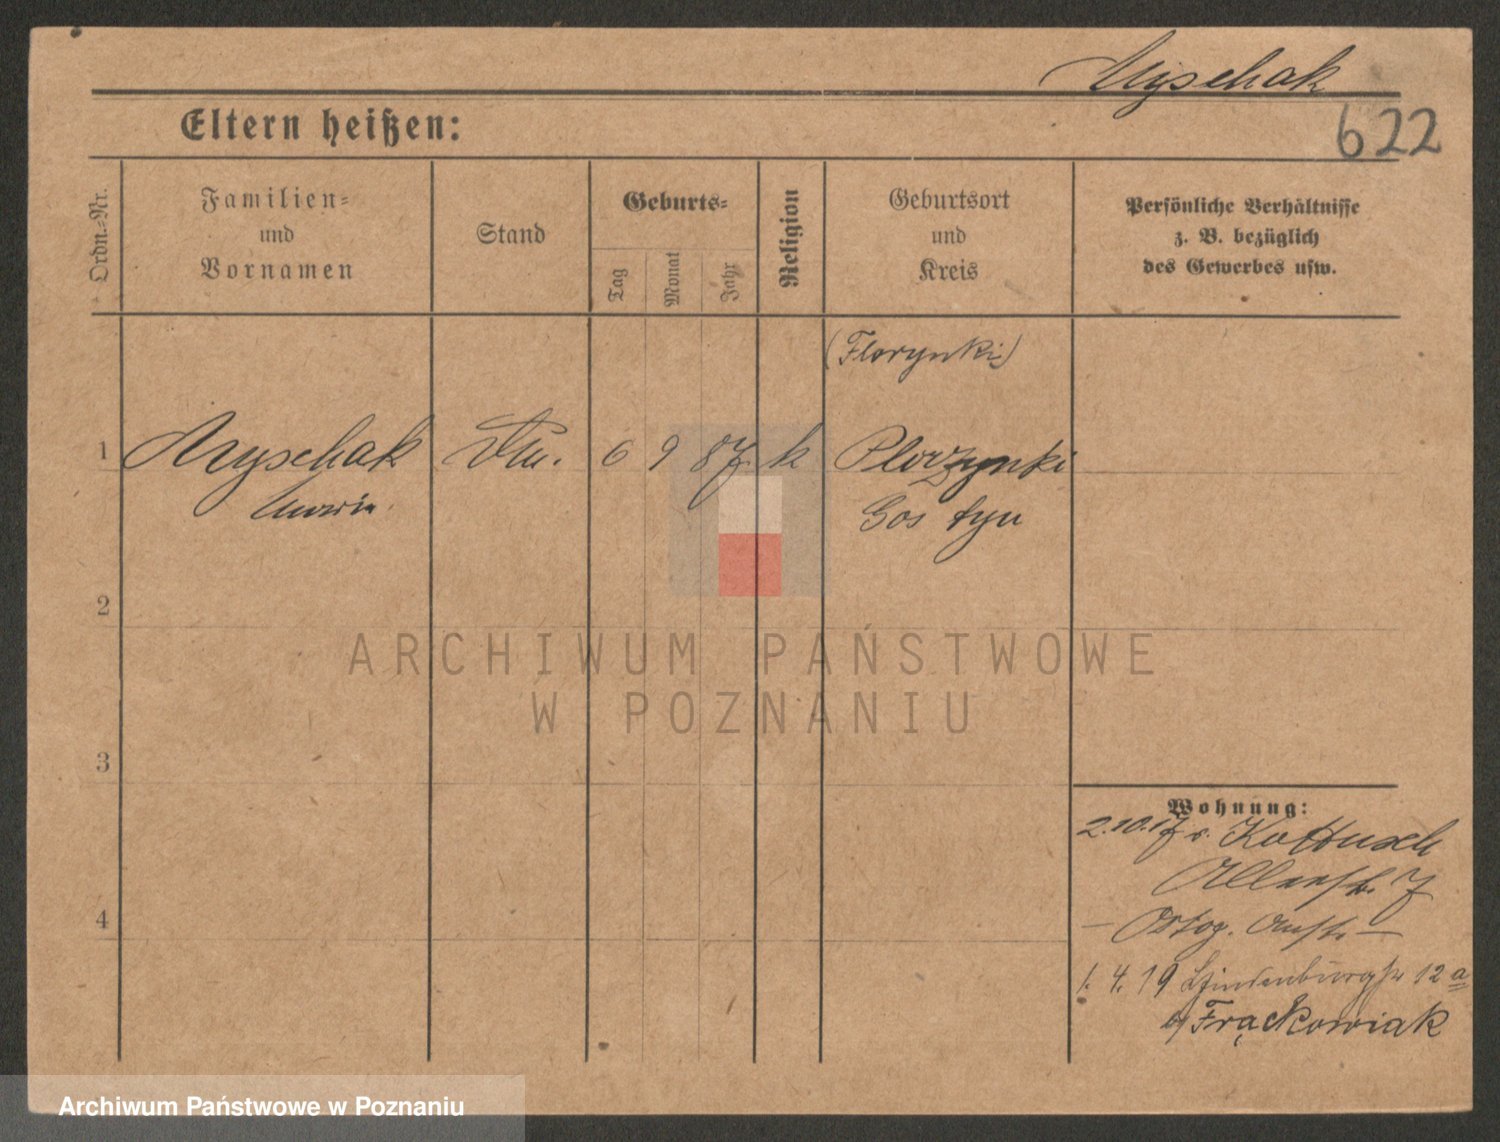 Myschak
622
Eltern heißen:
Ordn.-Nr.
Familien-
und
Vornamen
Stand
Geburts-
Tag
Monat
Jahr
Religion
Geburtsort
und
Kreis
Persönliche Verhältnisse
z. B. bezüglich
des Gewerbes usw.
(Florynki)
1 Myschak 6 9 87 k Plorzynki
Gostyn
2
3
4
Wohnung:
2.10.17 v. Kottusch
7
1. 4. 19 Hindenburgstr 12a
b/ Frąckowiak
ARCHIWUM PAŃSTWOWE
W POZNANIU
Archiwum Państwowe w Poznaniu